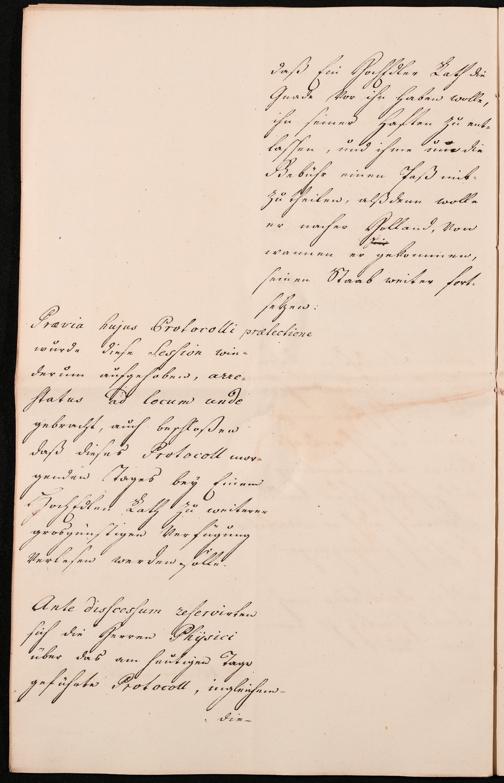 daß Ein HochEdler Rath die
Gnade vor ihn haben wolle,
ihn seiner Haften zu ent-
lassen, und ihme um die
Gebühr einen Paß mit-
zutheilen, alßdenn wolle
er nacher Holland, von
wannen er gekommen,
seinen Staab weiter fort-
setzen:
Prævia hujus Protocolli prælectione
wurde diese Session wie-
derum aufgehoben, arre-
status ad locum unde
gebracht, auch beschloßen
daß dieses Protocoll mor-
genden Tages bey Einem
HochEdlen Rath zu weiterer
grosgünstigen Verfügung
verlesen werden solle.
Ante discessum reservirten
sich die Herren Physici
über das am heutigen Tage
geführte Protocoll, ingleichem
die-